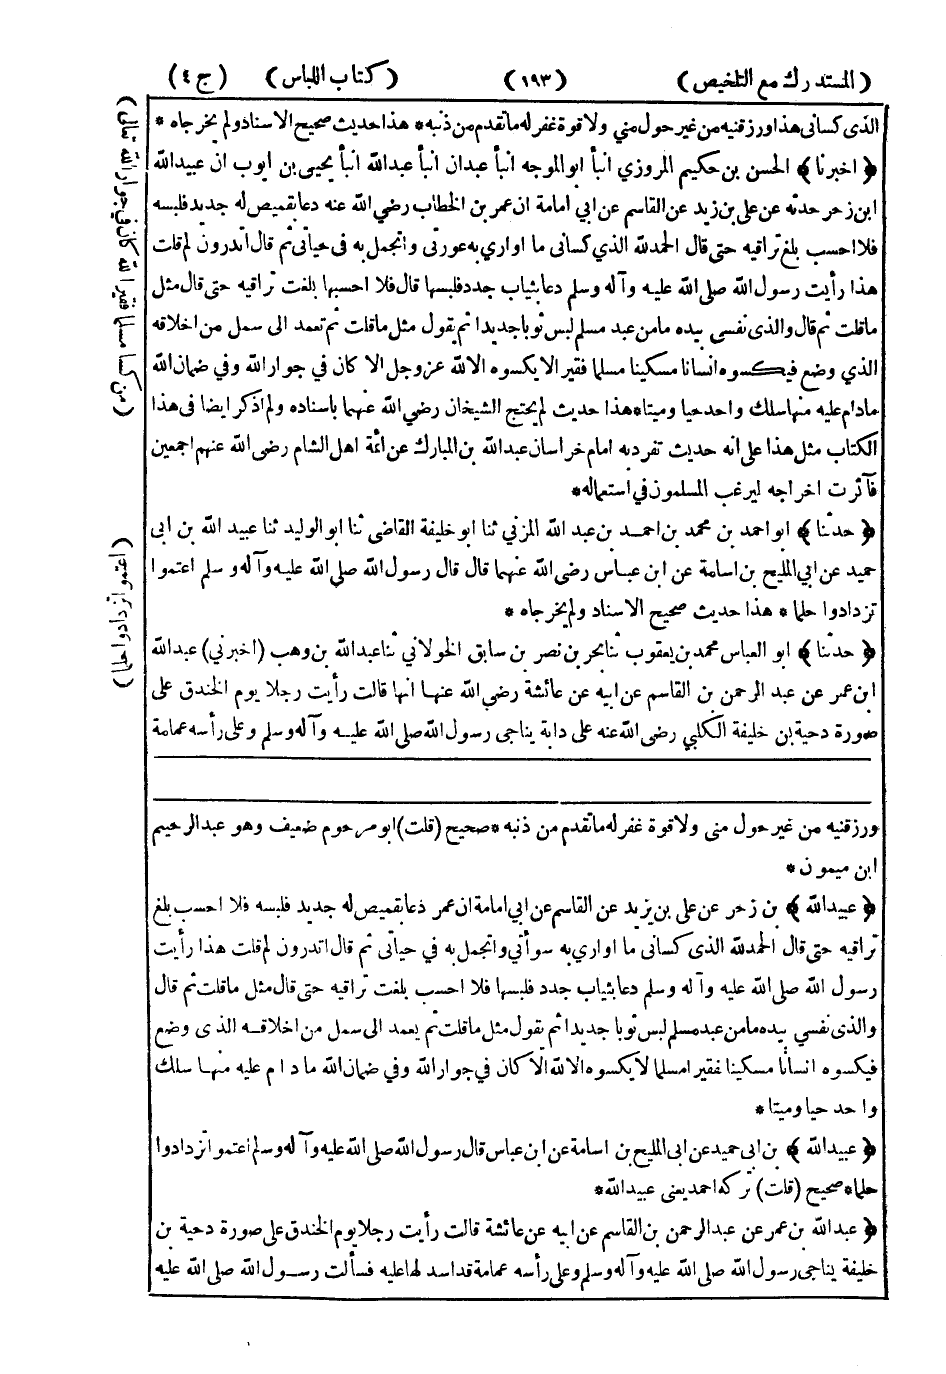 (المستدرك مع التلخيص) (١٩٣) (كتاب اللباس) (ج ٤)
الذى كسانى هذا ورزقنيه من غير حول مني ولا قوة غفر له ما تقدم من ذنبه * هذا حديث صحيح الاسناد ولم يخرجاه *
﴿ اخبرنا ﴾ الحسن بن حكيم المروزي انبأ ابو الموجه انبأ عبدان انبأ عبدالله انبأ يحيى بن ايوب ان عبيدالله
ابن زحر حدثه عن على بن زيد عن القاسم عن ابي امامة ان عمر بن الخطاب رضي الله عنه دعا بقميص له جديد فلبسه
فلا احسب بلغ تراقيه حتى قال الحمدلله الذي كسانى ما اواري به عورتى واتجمل به فى حياتى ثم قال اتدرون لم قلت
هذا رأيت رسول الله صلى الله عليه وآله وسلم دعا بثياب جدد فلبسها قال فلا احسبها بلغت تراقيه حتى قال مثل
ماقلت ثم قال والذى نفسي بيده مامن عبد مسلم لبس ثوبا جديدا ثم يقول مثل ماقلت ثم تعمد الى سمل من اخلاقه
الذي وضع فيكسوه انسانا مسكينا مسلما فقيرا لا يكسوه الا لله عز وجل الا كان في جوار الله وفي ضمان الله
مادام عليه منها سلك واحد حيا وميتا * هذا حديث لم يحتج الشيخان رضي الله عنهما باسناده ولم اذكر ايضا فى هذا
الكتاب مثل هذا على انه حديث تفرد به امام خراسان عبدالله بن المبارك عن ائمة اهل الشام رضى الله عنهم اجمعين
فآثرت اخراجه ليرغب المسلمون في استعماله *
﴿ حدثنا ﴾ ابو احمد بن محمد بن احمد بن عبد الله المزني ثنا ابو خليفة القاضى ثنا ابو الوليد ثنا عبيد الله بن ابى
حميد عن ابي المليح بن اسامة عن ابن عباس رضى الله عنهما قال قال رسول الله صلى الله عليه وآله وسلم اعتموا
تزدادوا حلما * هذا حديث صحيح الاسناد ولم يخرجاه *
﴿ حدثنا ﴾ ابو العباس محمد بن يعقوب ثنا بحر بن نصر بن سابق الخولاني ثنا عبدالله بن وهب (اخبرني) عبدالله
ابن عمر عن عبد الرحمن بن القاسم عن ابيه عن عائشة رضي الله عنها انها قالت رأيت رجلا يوم الخندق على
صورة دحية بن خليفة الكلبي رضى الله عنه على دابة يناجى رسول الله صلى الله عليه وآله وسلم وعلى رأسه عمامة
ورزقنيه من غير حول منى ولا قوة غفر له ماتقدم من ذنبه * صحيح (قلت) ابو مرحوم ضعيف وهو عبدالرحيم
ابن ميمون *
﴿ عبيدالله ﴾ بن زحر عن على بن يزيد عن القاسم عن ابي امامة ان عمر دعا بقميص له جديد فلبسه فلا احسب بلغ
تراقيه حتى قال الحمدلله الذى كسانى ما اواري به سوأتي واتجمل به في حياتى ثم قال اتدرون لم قلت هذا رأيت
رسول الله صلى الله عليه وآله وسلم دعا بثياب جدد فلبسها فلا احسب بلغت تراقيه حتى قال مثل ماقلت ثم قال
والذى نفسي بيده مامن عبد مسلم لبس ثوبا جديدا ثم يقول مثل ماقلت ثم يعمد الى سمل من اخلاقه الذى وضع
فيكسوه انسانا مسكينا فقيرا مسلما لايكسوه الا لله الا كان في جوار الله وفي ضمان الله مادام عليه منها سلك
واحد حيا وميتا *
﴿ عبيدالله ﴾ بن ابى حميد عن ابى المليح بن اسامة عن ابن عباس قال رسول الله صلى الله عليه وآله وسلم اعتموا تزدادوا
حلما * صحيح (قلت) تركه احمد يعنى عبيدالله *
﴿ عبدالله بن عمر عن عبدالرحمن بن القاسم عن ابيه عن عائشة قالت رأيت رجلا يوم الخندق على صورة دحية بن
خليفة يناجى رسول الله صلى الله عليه وآله وسلم وعلى رأسه عمامة قد اسدلها عليه فسألت رسول الله صلى الله عليه
(من كسا مسلما فقيرا لله كان في جوار الله تعالى)
(اعتموا تزدادوا حلما)